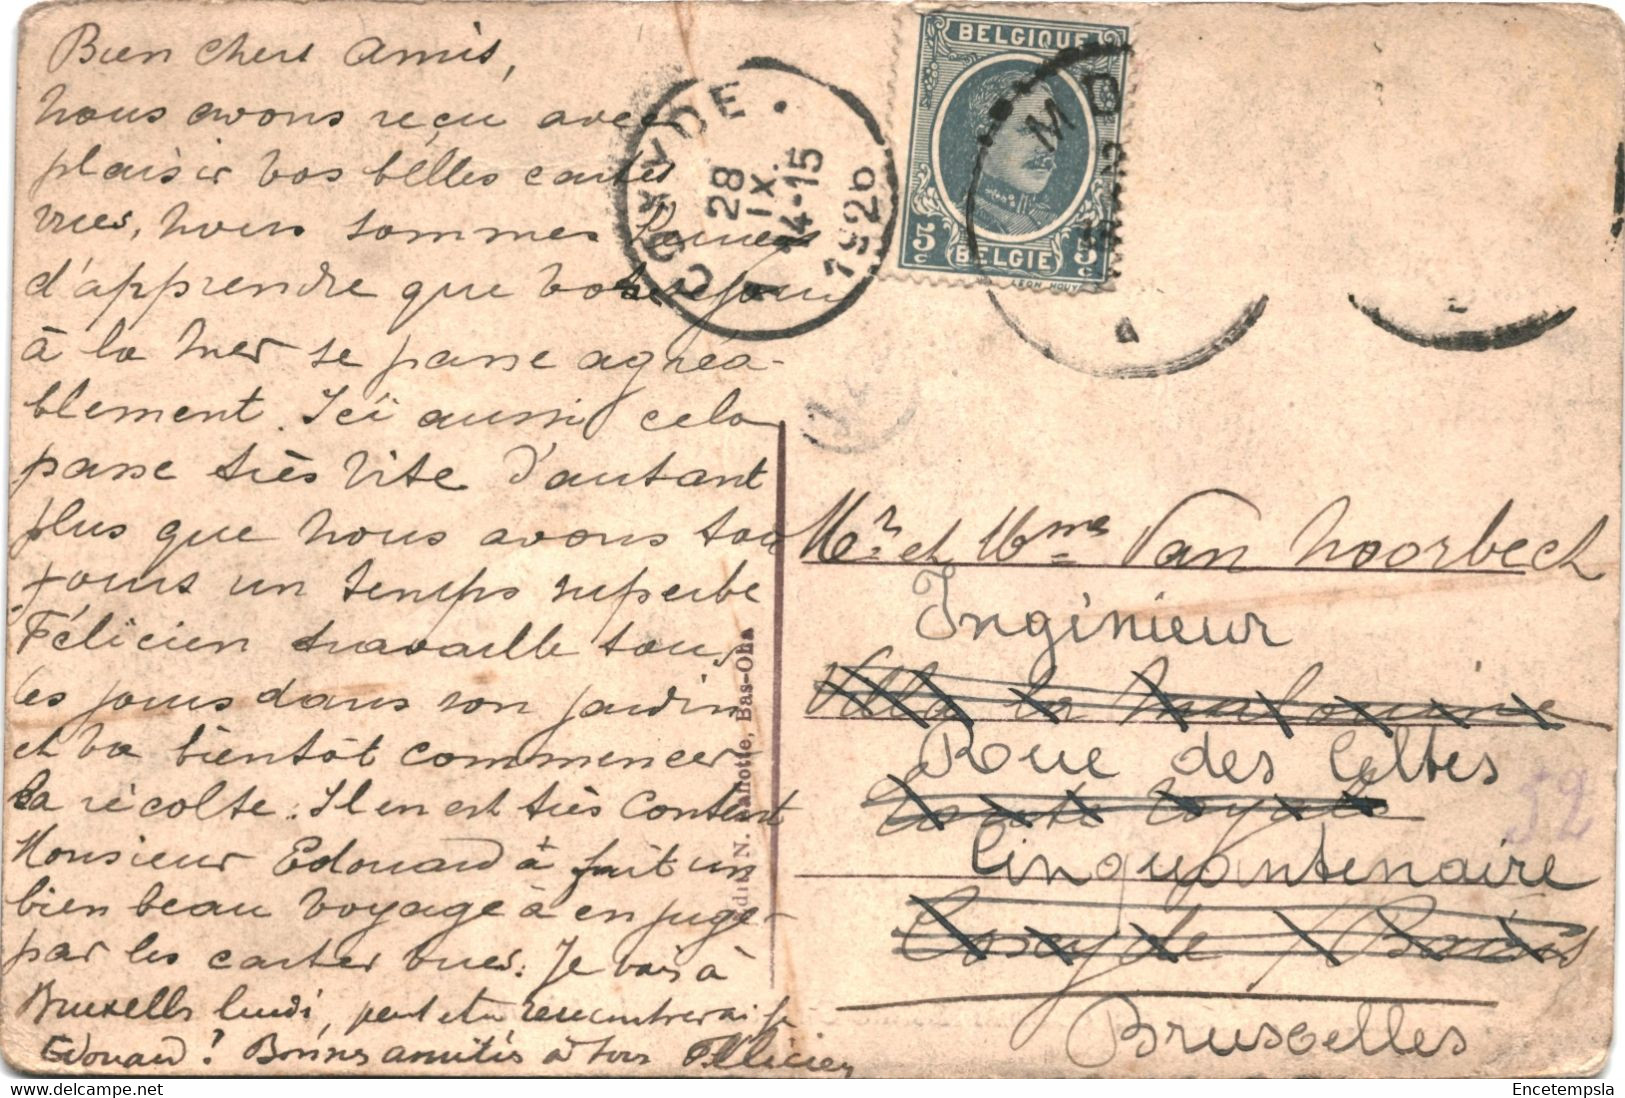 Bien chers amis,
nous avons reçu avec
plaisir vos belles cartes
vues, nous sommes heureux
d'apprendre que votre séjour
à la mer se passe agréa-
blement. Ici aussi cela
passe très vite d'autant
plus que nous avons tou
jours un temps superbe
Félicien travaille tous
les jours dans son jardin
et va bientôt commencer
la récolte. Il en est très content
Monsieur Edouard à fait un
bien beau voyage à en juge-
par les cartes vues. Je vais à
Bruxelles lundi, peut etre rencontrerai je
Edouard? Bonnes amitiés à tous Félicien
COXYDE
28
IX
14-15
1926
BELGIQUE
5c BELGIE 5c
Mr et Mme Van Noorbeeck
Ingénieur
Villa la Malouine
Rue des Celtes
Route Royale
52
Cinquantenaire
Coxyde s/ Bains
Bruxelles
N. Lahotte, Bas-Oha
Delcampe.net
Encetempsla